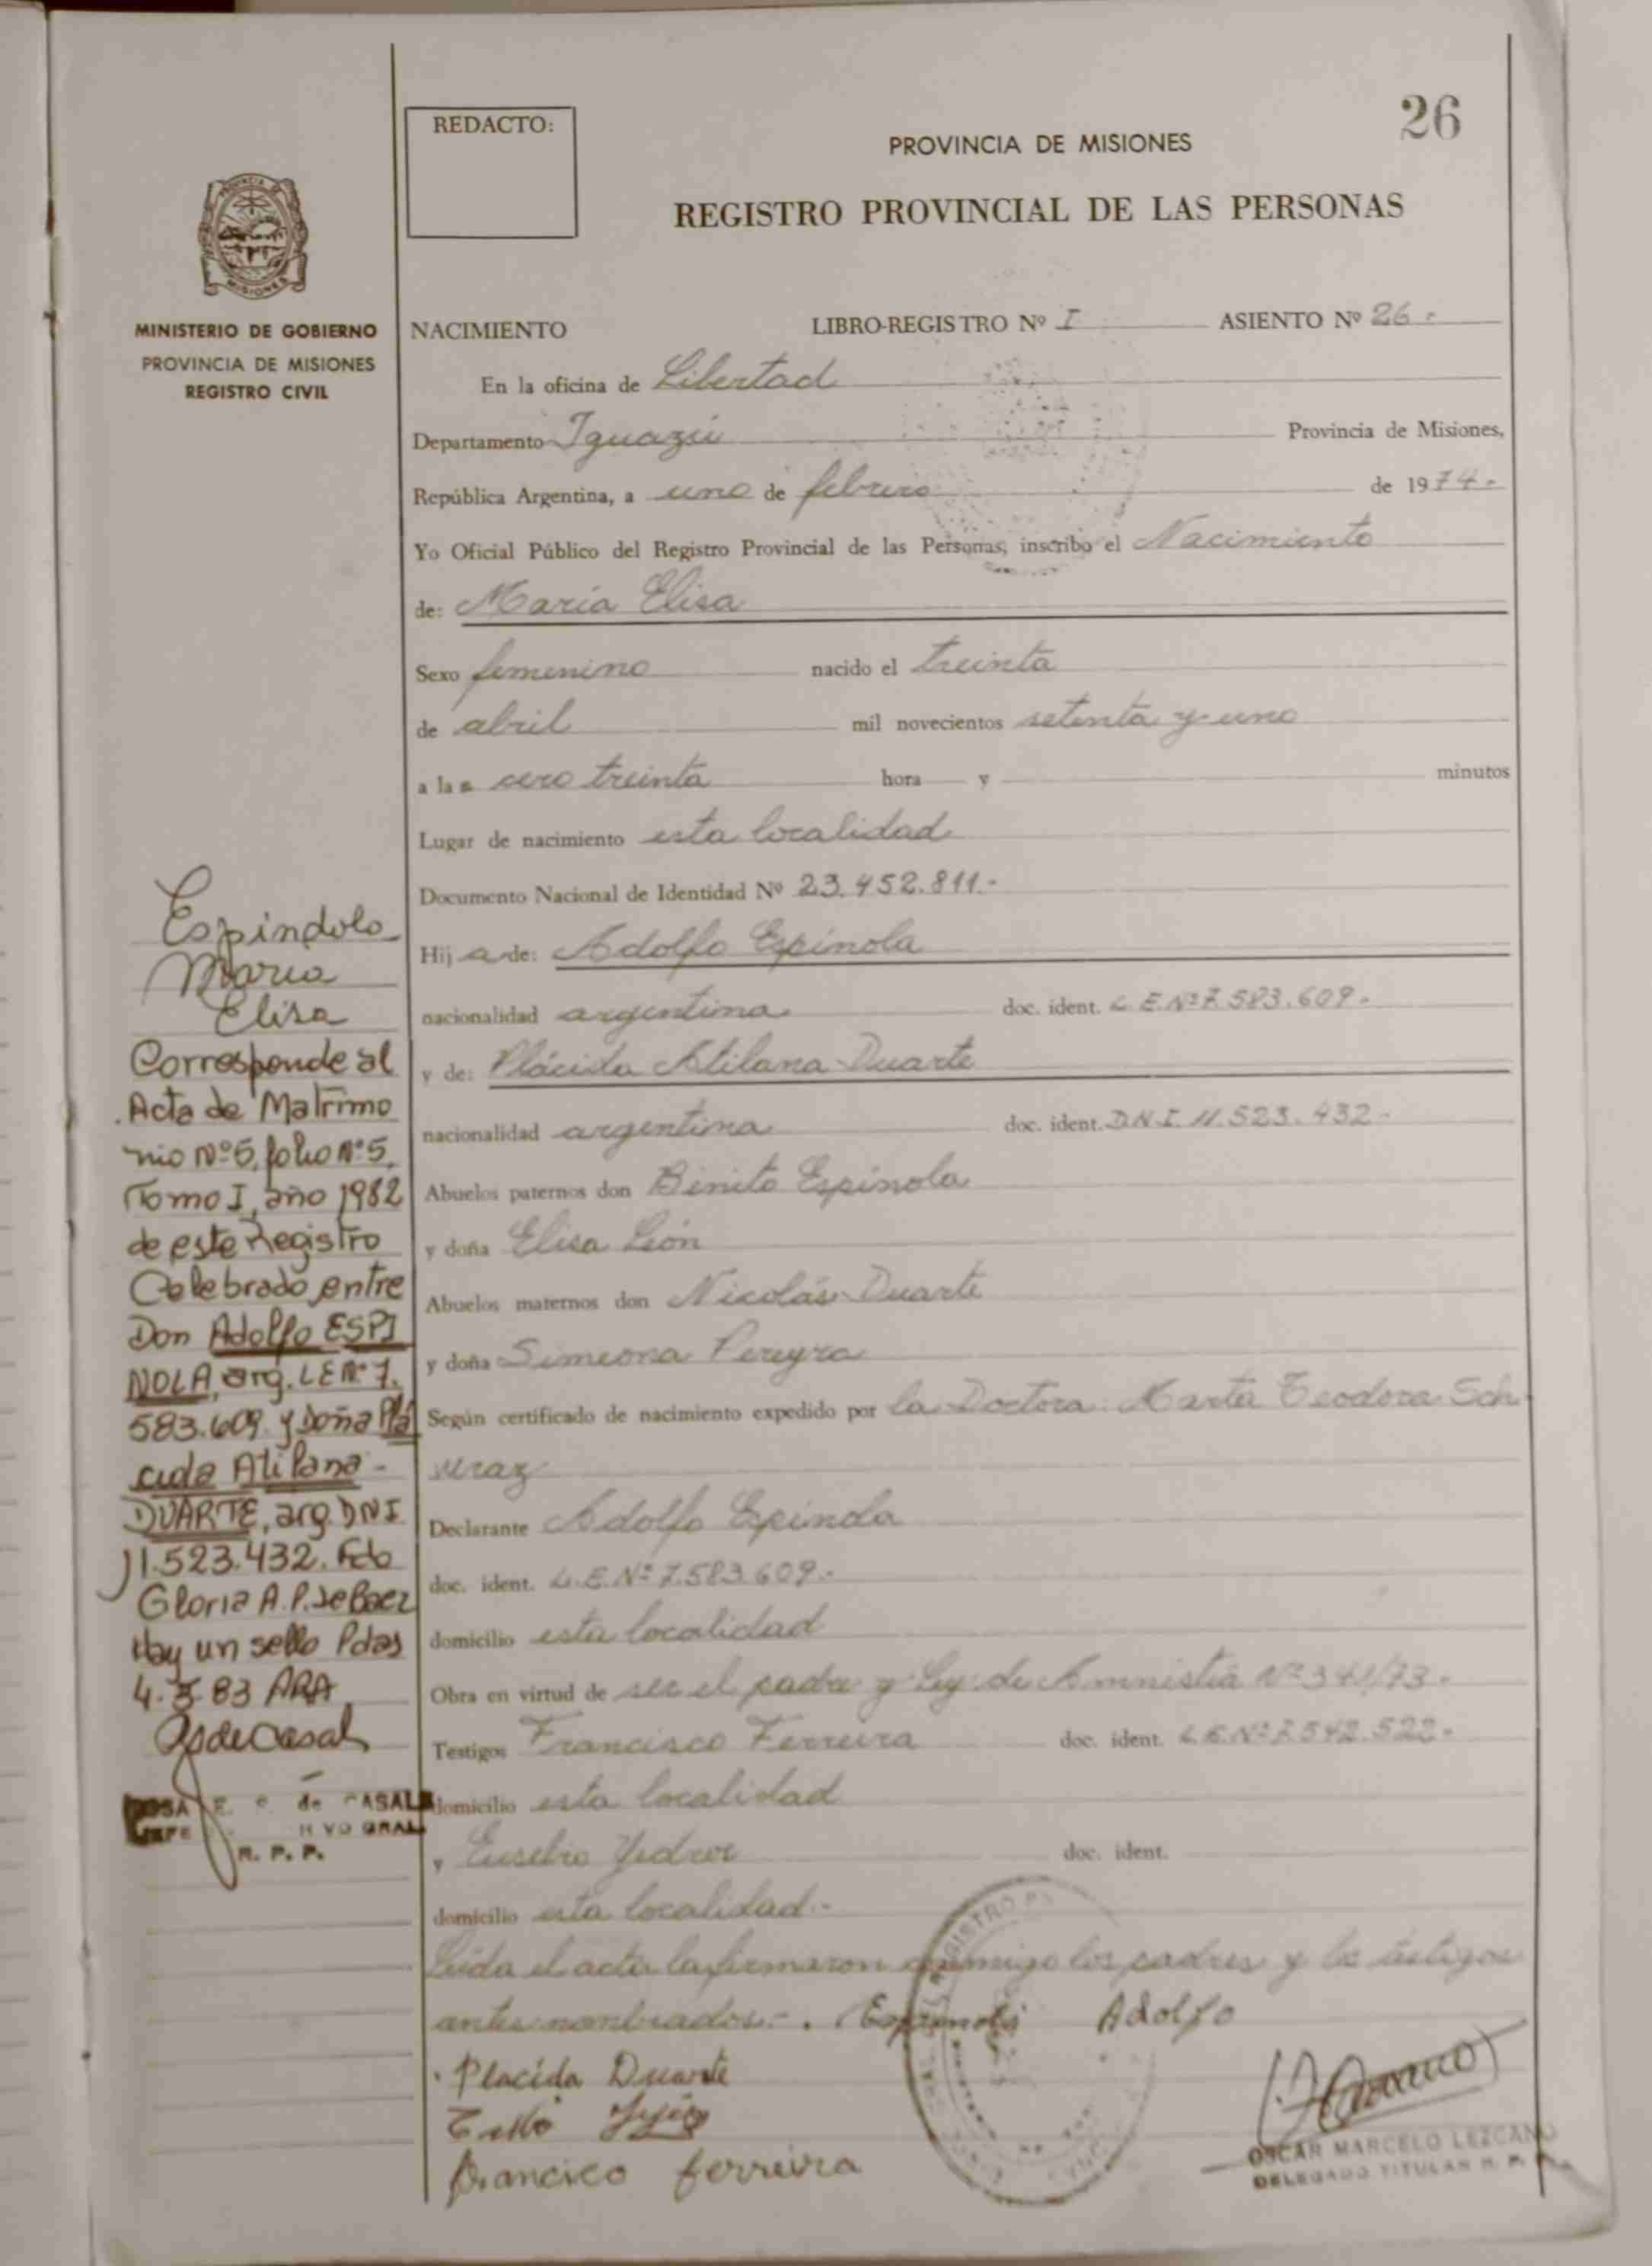 26
REDACTO:
PROVINCIA DE MISIONES
REGISTRO PROVINCIAL DE LAS PERSONAS
PROVINCIA DE
MISIONES
MINISTERIO DE GOBIERNO
PROVINCIA DE MISIONES
REGISTRO CIVIL
NACIMIENTO LIBRO-REGISTRO Nº I ASIENTO Nº 26.-
En la oficina de Libertad
Departamento Iguazú Provincia de Misiones,
República Argentina, a uno de febrero de 1974.-
Yo Oficial Público del Registro Provincial de las Personas, inscribo el Nacimiento
de: María Elisa
Sexo femenino nacido el treinta
de abril mil novecientos setenta y uno
a las cero treinta hora y minutos
Lugar de nacimiento esta localidad
Documento Nacional de Identidad Nº 23.452.811.-
Hija de: Adolfo Espínola
nacionalidad argentina doc. ident. L.E.Nº 7.583.609.-
y de: Plácida Atilana Duarte
nacionalidad argentina doc. ident. D.N.I. 11.523.432.-
Abuelos paternos don Benito Espínola
y doña Elisa León
Abuelos maternos don Nicolás Duarte
y doña Simeona Pereyra
Según certificado de nacimiento expedido por la Doctora: Marta Teodora Sch-
Declarante Adolfo Espínola
doc. ident. L.E.Nº 7.583.609.-
domicilio esta localidad
Obra en virtud de ser el padre y Ley de Amnistía Nº 341/73.-
Testigos Francisco Ferreira doc. ident. L.E.Nº 7.542.522.-
domicilio esta localidad
y Eusebio doc. ident.
domicilio esta localidad.-
Leída el acta la firmaron conmigo los padres y los testigos
antes nombrados.-. Espinola Adolfo
Placida Duarte
Francisco ferreira
OSCAR MARCELO LEZCANO
DELEGADO TITULAR R. P.
Espindola
Maria
Elisa
Corresponde al
Acta de Matrimo
nio Nº5, folio Nº5,
Tomo I, año 1982
de este Registro
Celebrado entre
Don Adolfo ESPI
NOLA, arg. LE Nº 7.
583.609. y Doña Plá
cida Atilana-
DUARTE, arg. DNI
11.523.432. Fdo
Gloria A.P. de Baez
Hay un sello Pdas
4.5.83 ARA
de CASALE
R. P. P.